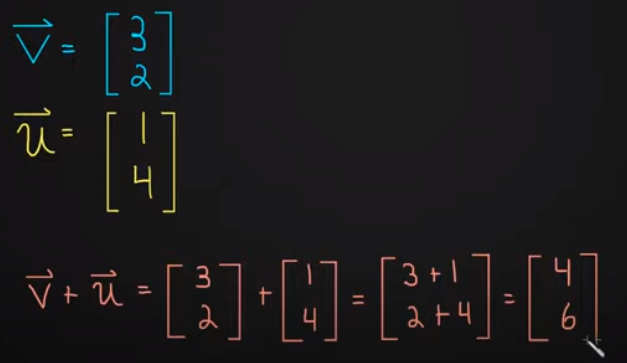 v⃗ = [3 2]
u⃗ = [1 4]
v⃗ + u⃗ = [3 2] + [1 4] = [3+1 2+4] = [4 6]